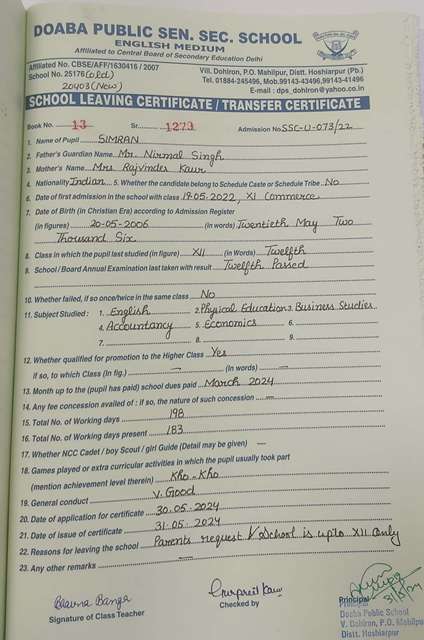 DOABA PUBLIC SEN. SEC. SCHOOL
ENGLISH MEDIUM
Affiliated to Central Board of Secondary Education Delhi
Affiliated No. CBSE/AFF/1630416 / 2007
School No. 25176 (old)
20403 (New)
Vill. Dohlron, P.O. Mahilpur, Distt. Hoshiarpur (Pb.)
Tel. 01884-245496, Mob.99143-43496,99143-41496
E-mail : dps_dohlron@yahoo.co.in
SCHOOL LEAVING CERTIFICATE / TRANSFER CERTIFICATE
Book No. 13 Sr. 1273 Admission No SSC-U-073/22
1. Name of Pupil SIMRAN
2. Father's Guardian Name Mr. Nirmal Singh
3. Mother's Name Mrs Rajvinder Kaur
4. Nationality Indian 5. Whether the candidate belong to Schedule Caste or Schedule Tribe No
6. Date of first admission in the school with class 19.05.2022, XI Commerce
7. Date of Birth (in Christian Era) according to Admission Register
(in figures) 20-05-2006 (In words) Twentieth May Two
Thousand Six
8. Class in which the pupil last studied (in figure) XII (in Words) Twelfth
9. School / Board Annual Examination last taken with result Twelfth Passed
10. Whether failed, if so once/twice in the same class No
11. Subject Studied : 1. English 2. Physical Education 3. Business Studies
4. Accountancy 5. Economics 6.
7. 8. 9.
12. Whether qualified for promotion to the Higher Class Yes
if so, to which Class (In fig.) — (In words) —
13. Month up to the (pupil has paid) school dues paid March 2024
14. Any fee concession availed of : if so, the nature of such concession —
15. Total No. of Working days 198
16. Total No. of Working days present 183
17. Whether NCC Cadet / boy Scout / girl Guide (Detail may be given) —
18. Games played or extra curricular activities in which the pupil usually took part
(mention achievement level therein) Kho-Kho
19. General conduct V. Good
20. Date of application for certificate 30.05.2024
21. Date of issue of certificate 31.05.2024
22. Reasons for leaving the school Parents request School is upto XII only
23. Any other remarks —
Bhavna Banga
Signature of Class Teacher
Gurpreet Kaur
Checked by
31/5/24
Principal
Principal
Doaba Public School
V. Dohlron, P.O. Mahilpu
Distt. Hoshiarpur